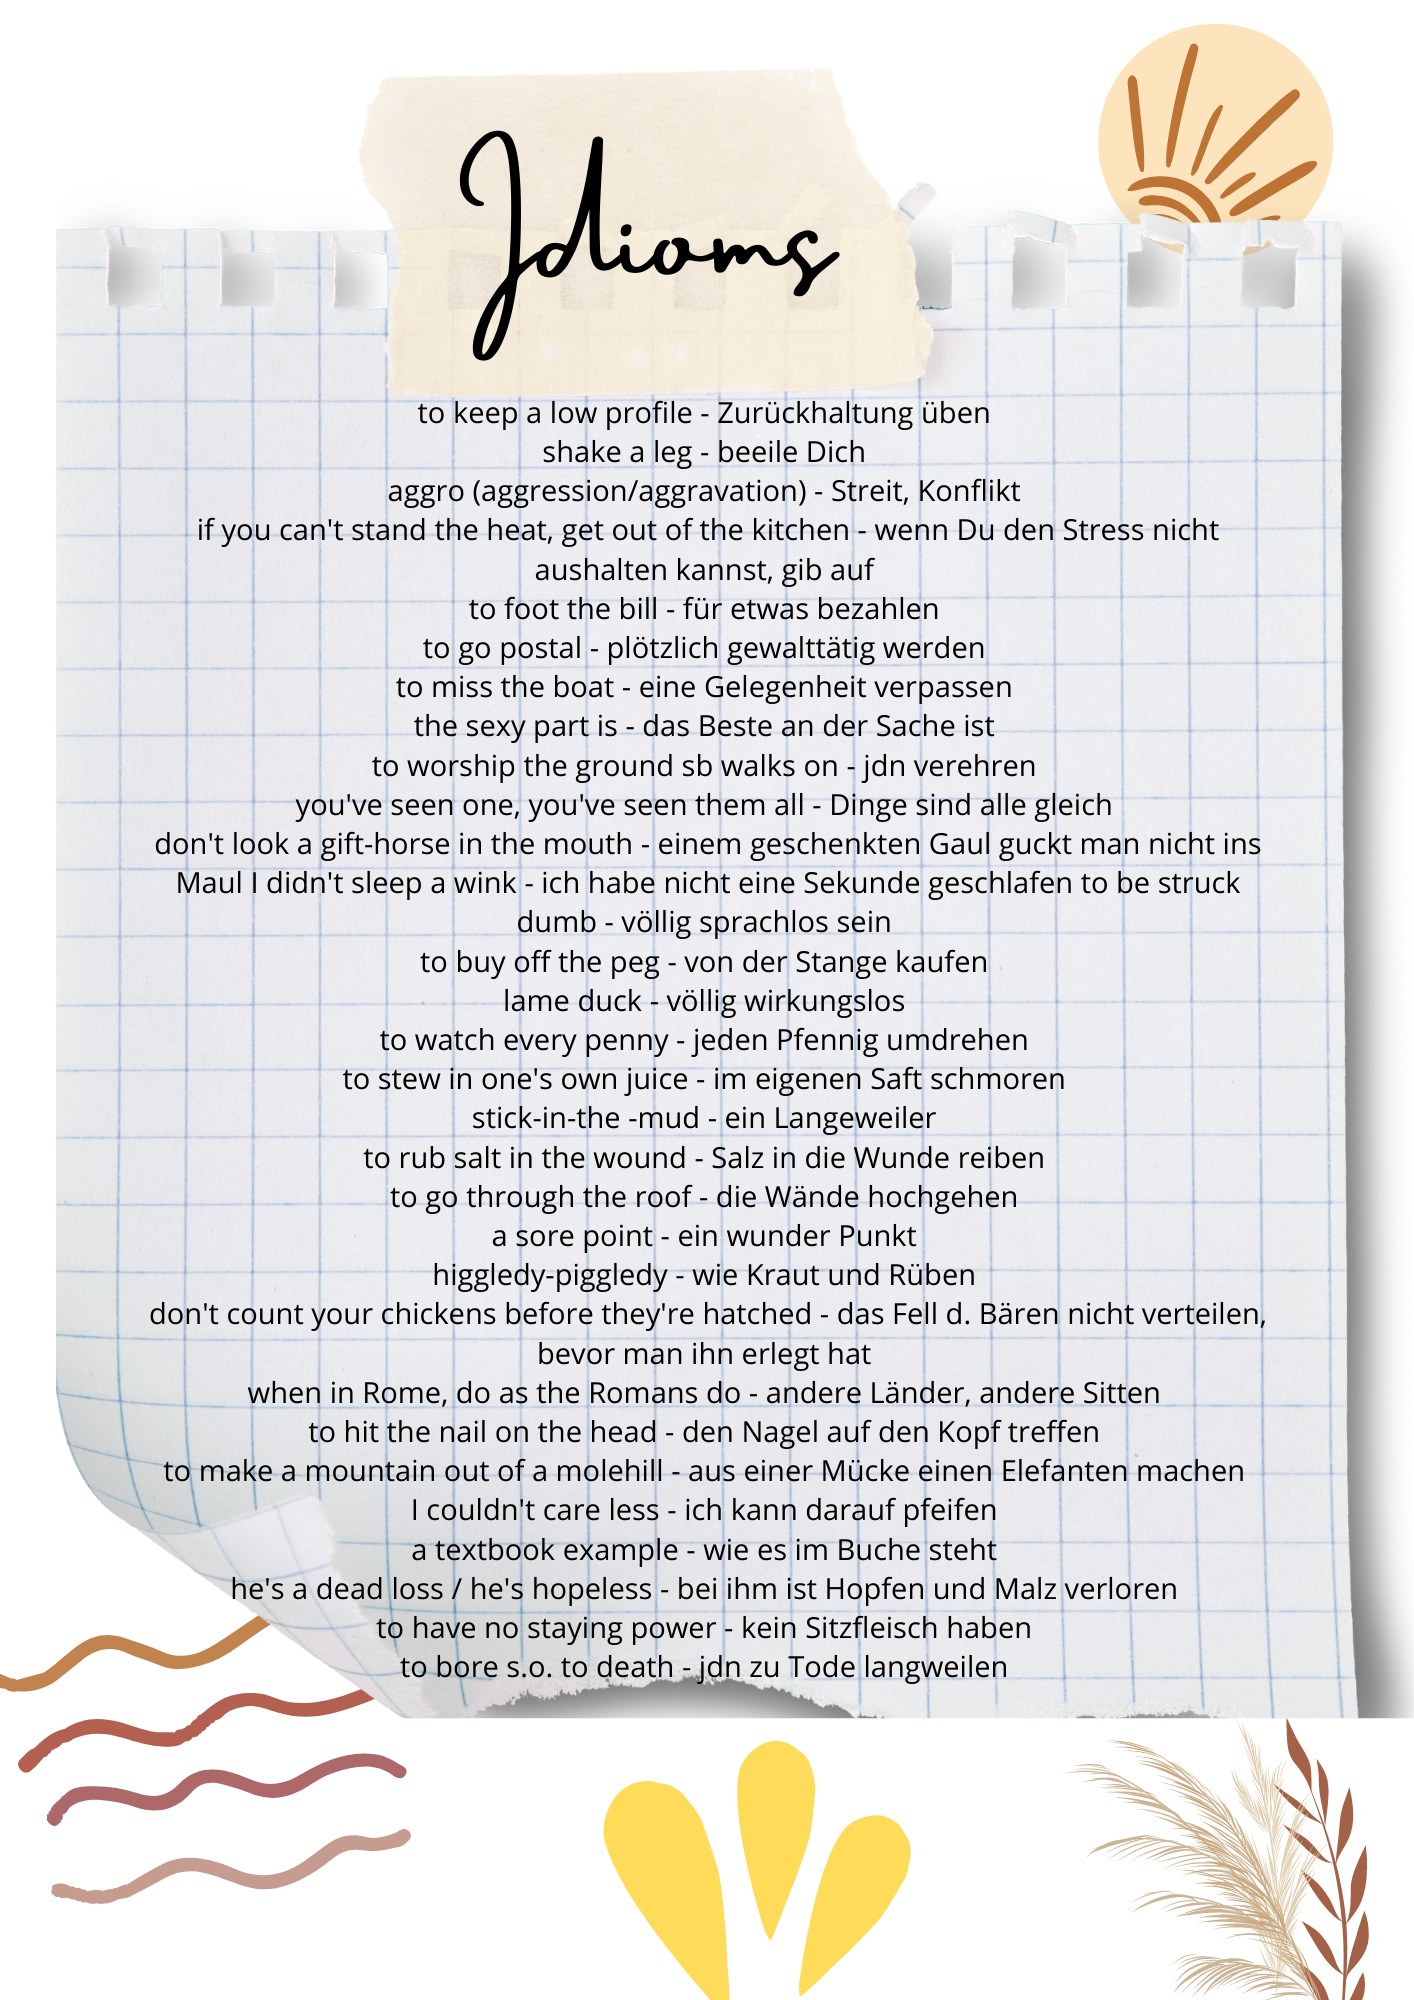 Idioms
to keep a low profile - Zurückhaltung üben
shake a leg - beeile Dich
aggro (aggression/aggravation) - Streit, Konflikt
if you can't stand the heat, get out of the kitchen - wenn Du den Stress nicht
aushalten kannst, gib auf
to foot the bill - für etwas bezahlen
to go postal - plötzlich gewalttätig werden
to miss the boat - eine Gelegenheit verpassen
the sexy part is - das Beste an der Sache ist
to worship the ground sb walks on - jdn verehren
you've seen one, you've seen them all - Dinge sind alle gleich
don't look a gift-horse in the mouth - einem geschenkten Gaul guckt man nicht ins
Maul I didn't sleep a wink - ich habe nicht eine Sekunde geschlafen to be struck
dumb - völlig sprachlos sein
to buy off the peg - von der Stange kaufen
lame duck - völlig wirkungslos
to watch every penny - jeden Pfennig umdrehen
to stew in one's own juice - im eigenen Saft schmoren
stick-in-the -mud - ein Langeweiler
to rub salt in the wound - Salz in die Wunde reiben
to go through the roof - die Wände hochgehen
a sore point - ein wunder Punkt
higgledy-piggledy - wie Kraut und Rüben
don't count your chickens before they're hatched - das Fell d. Bären nicht verteilen,
bevor man ihn erlegt hat
when in Rome, do as the Romans do - andere Länder, andere Sitten
to hit the nail on the head - den Nagel auf den Kopf treffen
to make a mountain out of a molehill - aus einer Mücke einen Elefanten machen
I couldn't care less - ich kann darauf pfeifen
a textbook example - wie es im Buche steht
he's a dead loss / he's hopeless - bei ihm ist Hopfen und Malz verloren
to have no staying power - kein Sitzfleisch haben
to bore s.o. to death - jdn zu Tode langweilen